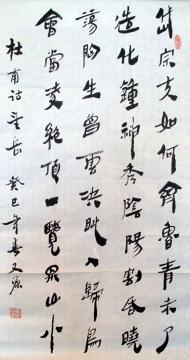 岱宗夫如何齊魯青未了
造化鐘神秀陰陽割昏曉
蕩胸生曾雲決眥入歸鳥
會當凌絕頂一覽眾山小
杜甫诗望岳 癸巳年春又